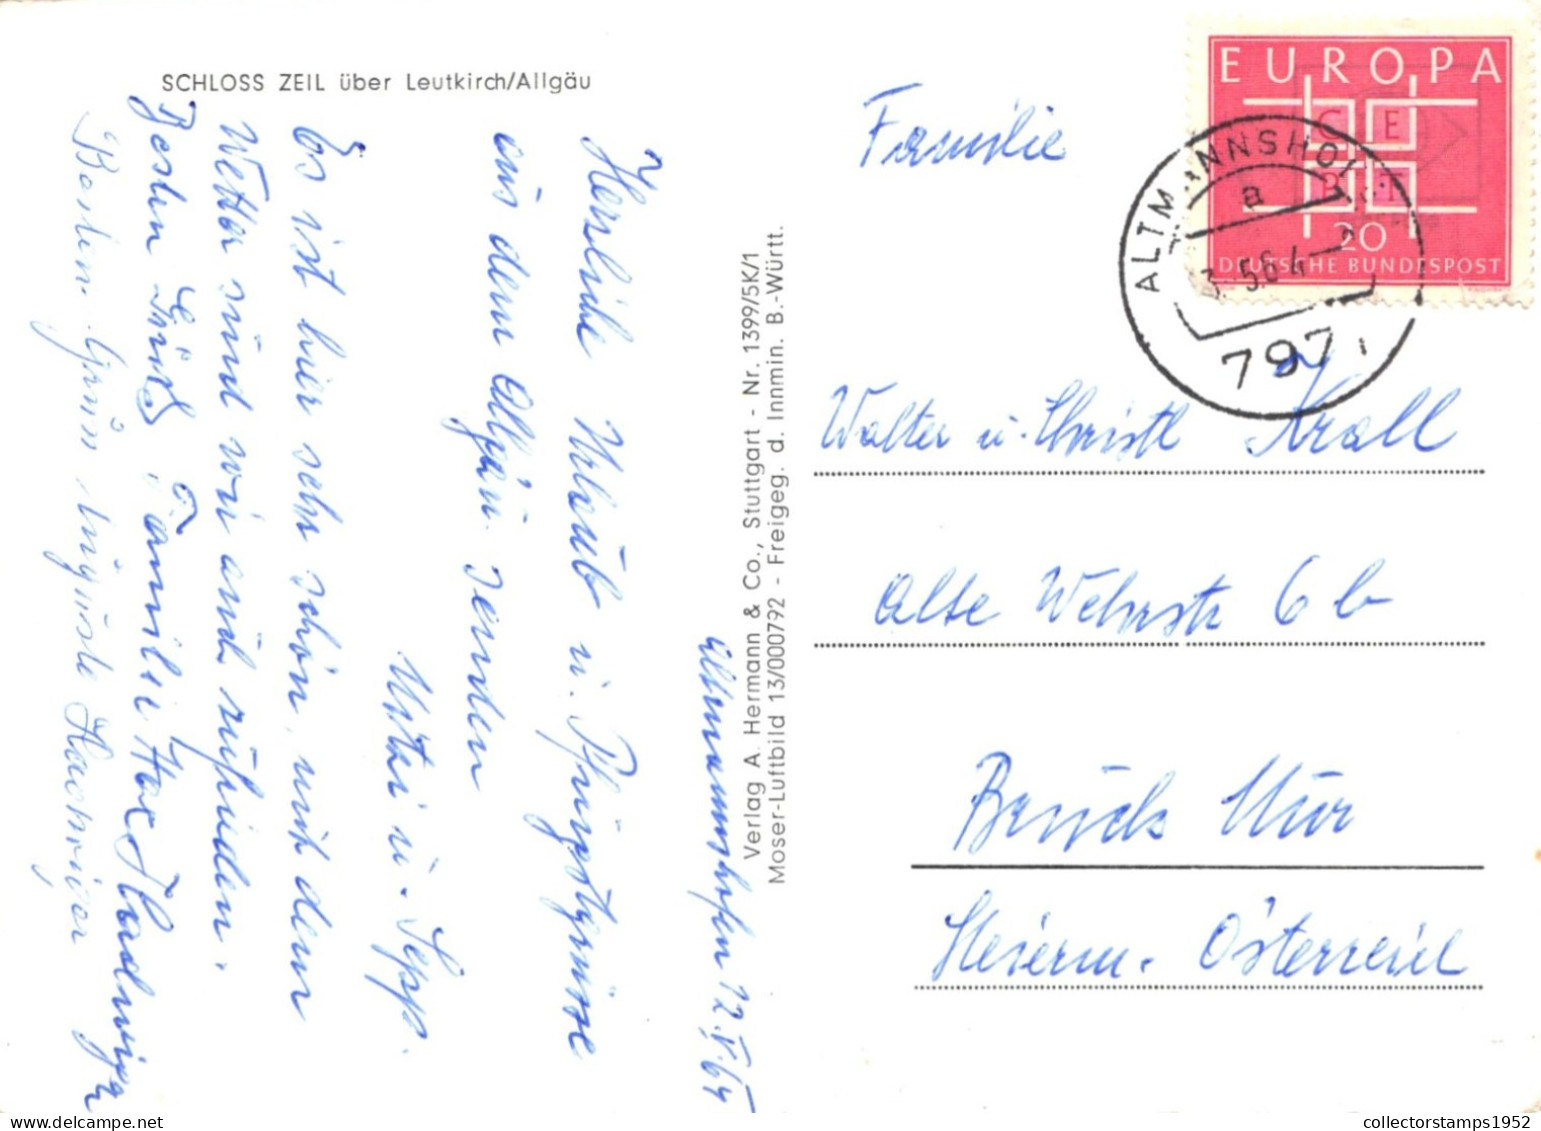 SCHLOSS ZEIL über Leutkirch/Allgäu
Altmannshofen 12.V.64
Herzliche Urlaub u. Pfingstgrüsse
aus dem Allgäu senden
Mitzi u. Sepp.
Es ist hier sehr schön, mit dem
Wetter sind wir auch zufrieden.
Besten Gruß, Familie
Besten Gruß
Verlag A. Hermann & Co., Stuttgart - Nr. 1399/5K/1
Moser-Luftbild 13/000792 - Freigeg. d. Innmin. B.-Württ.
EUROPA
CEPT
20
DEUTSCHE BUNDESPOST
a
5.64
797
Familie
Walter u. Christl Krall
Alte Wehrstr 6 b
Bruck Mur
Steierm. Österreich
collectorstamps1952